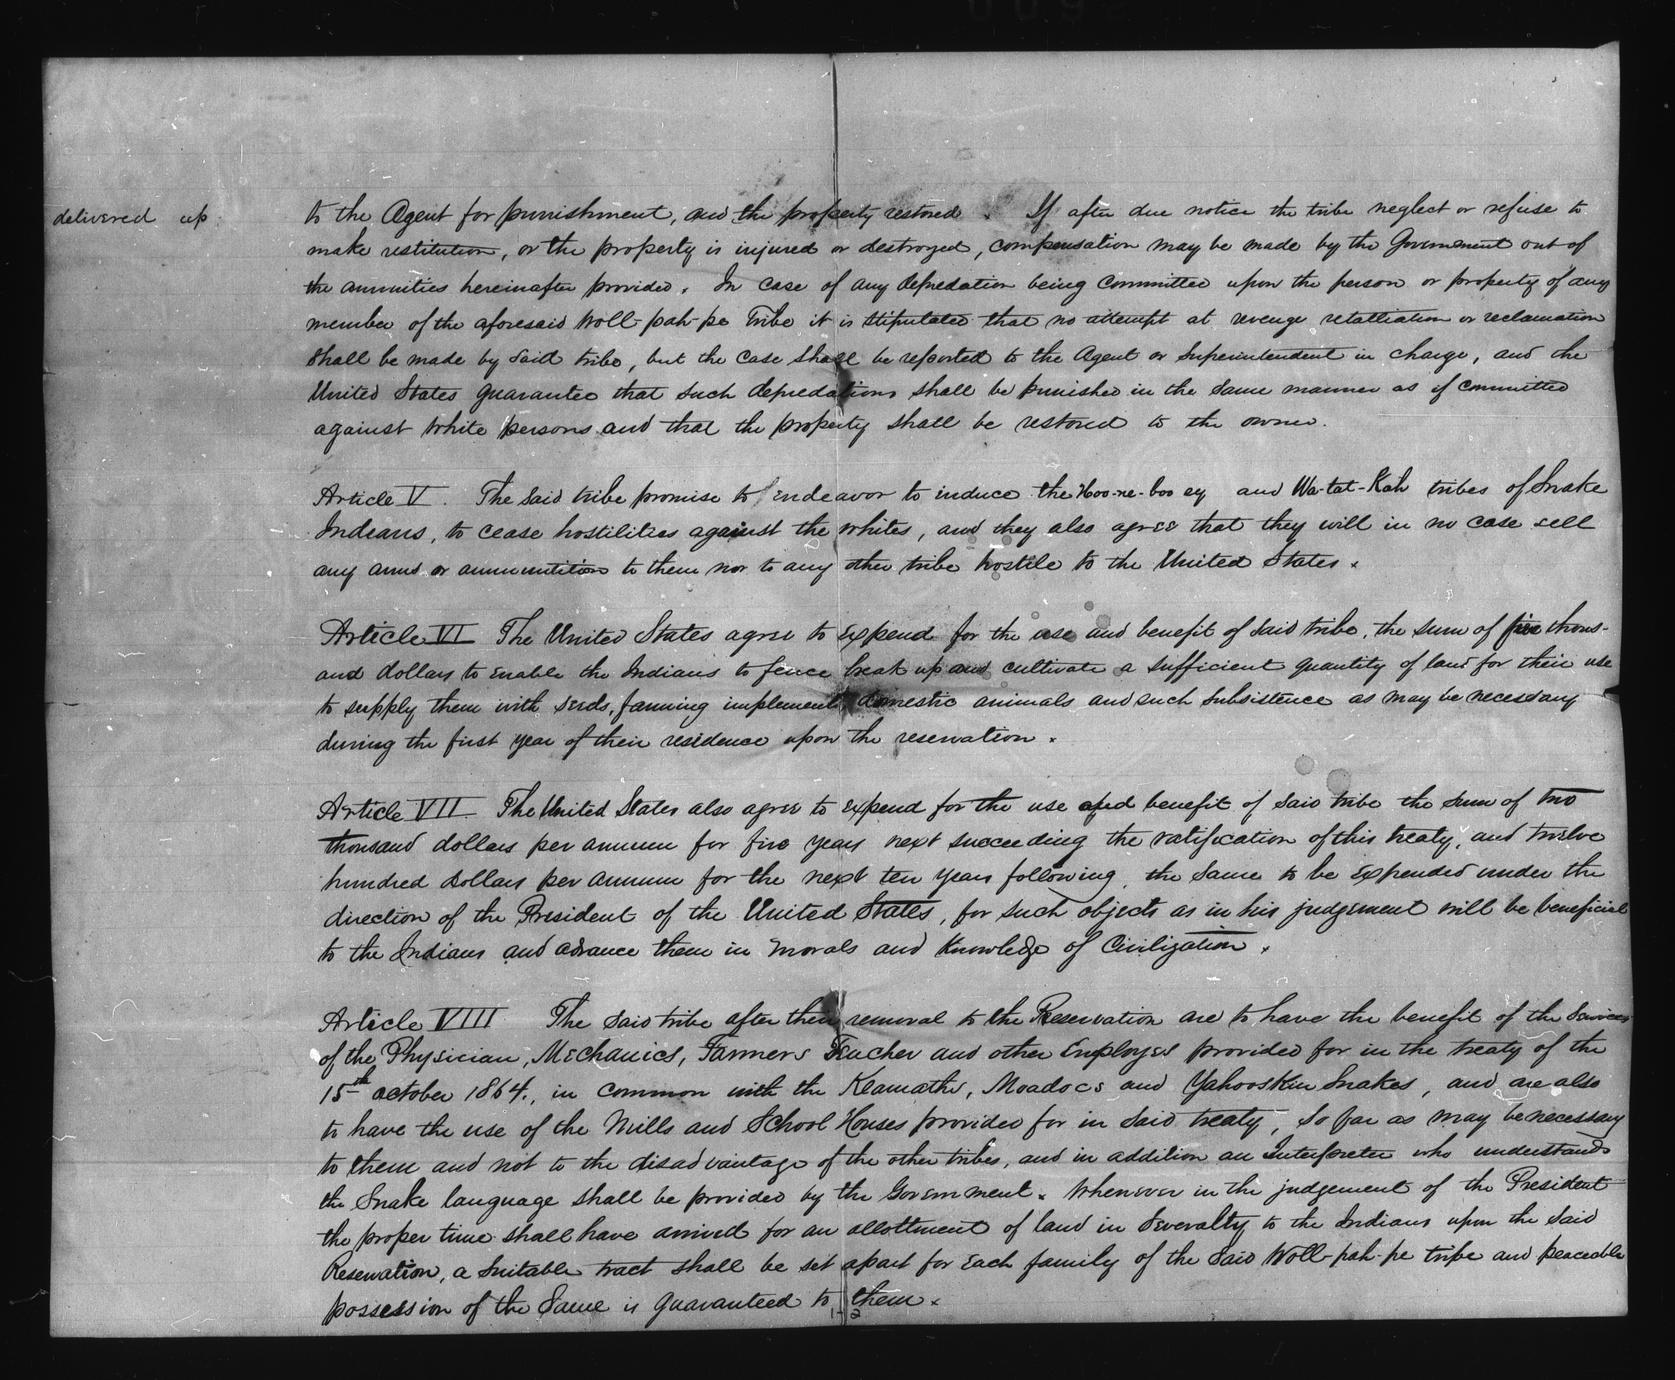 delivered up to the Agent for punishment, and the property restored. If after due notice the tribe neglect or refuse to
make restitution, or the property is injured or destroyed, compensation may be made by the Government out of
the annuities hereinafter provided. In case of any depredation being committed upon the person or property of any
member of the aforesaid Woll-pah-pe Tribe it is stipulated that no attempt at revenge retalliation or reclamation
shall be made by said tribe, but the case shall be reported to the Agent or Superintendent in charge, and the
United States guarantee that such depredations shall be punished in the same manner as if committed
against white persons and that the property shall be restored to the owner.
Article V. The said tribe promise to endeavor to induce the Hoo-ne-boo ey and Wa-tat-Kah tribes of Snake
Indians, to cease hostilities against the whites, and they also agree that they will in no case sell
any arms or ammunition to them nor to any other tribe hostile to the United States.
Article VI The United States agree to expend for the use and benefit of said tribe, the sum of five thous-
and dollars to enable the Indians to fence break up and cultivate a sufficient quantity of land for their use
to supply them with seeds, farming implements domestic animals and such subsistence as may be necessary
during the first year of their residence upon the reservation.
Article VII The United States also agree to expend for the use and benefit of said tribe the sum of two
thousand dollars per annum for five years next succeeding the ratification of this treaty, and twelve
hundred dollars per annum for the next ten years following, the same to be expended under the
direction of the President of the United States, for such objects as in his judgement will be beneficial
to the Indians and advance them in morals and Knowledge of Civilization.
Article VIII The said tribe after their removal to the Reservation are to have the benefit of the Services
of the Physician, Mechanics, Farmers Teacher and other Employes provided for in the treaty of the
15th october 1864., in common with the Klamaths, Moadocs and Yahooskin Snakes, and are also
to have the use of the Mills and School Houses provided for in said treaty, so far as may be necessary
to them and not to the disadvantage of the other tribes, and in addition an Interpreter who understands
the Snake language shall be provided by the Government. Whenever in the judgement of the President
the proper time shall have arrived for an allottment of land in Severalty to the Indians upon the said
Reservation, a suitable tract shall be set apart for each family of the said Woll-pah-pe tribe and peaceable
possession of the same is guaranteed to them.
1-2